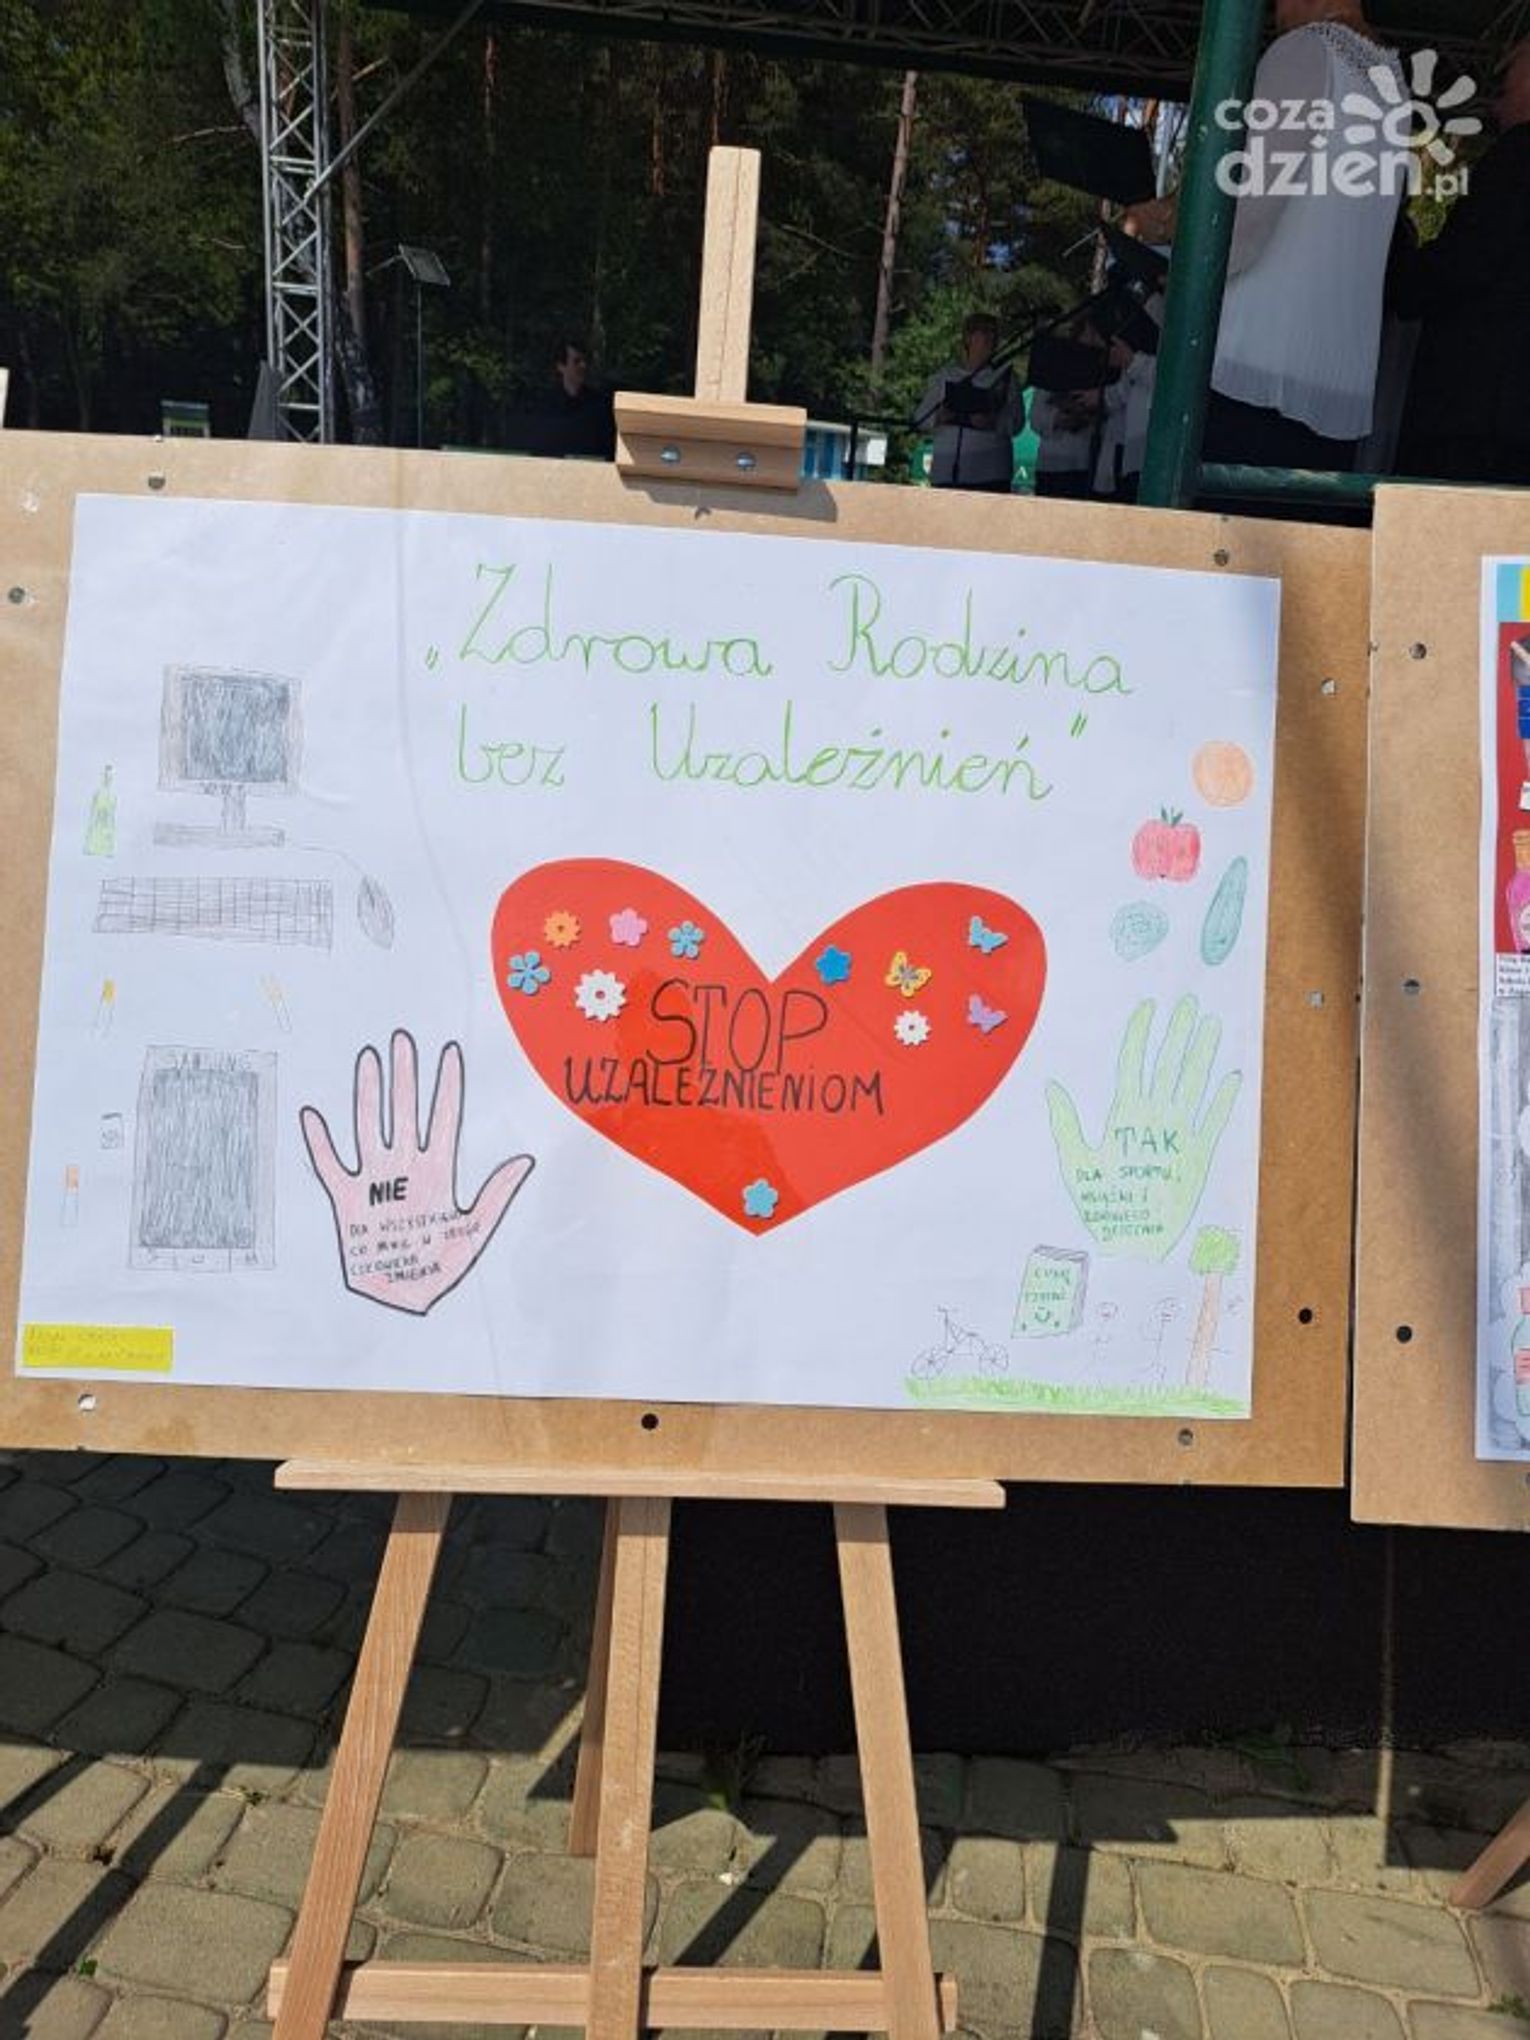 coza
dzien.pl
„Zdrowa Rodzina
bez Uzależnień"
STOP
UZALEŻNIENIOM
NIE
DLA WSZYSTKIEGO
CO MNIE W ZŁEGO
CZŁOWIEKA
ZMIENIA
TAK
DLA SPORTU,
KSIĄŻKI I
ZDROWEGO
JEDZENIA